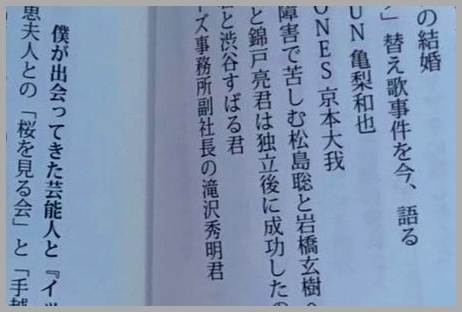 の結婚
」替え歌事件を今、語る
UN 亀梨和也
ONES 京本大我
障害で苦しむ松島聡と岩橋玄樹。
と錦戸亮君は独立後に成功したの
と渋谷すばる君
ーズ事務所副社長の滝沢秀明君
僕が出会ってきた芸能人と『イッ
恵夫人との「桜を見る会」と「手越